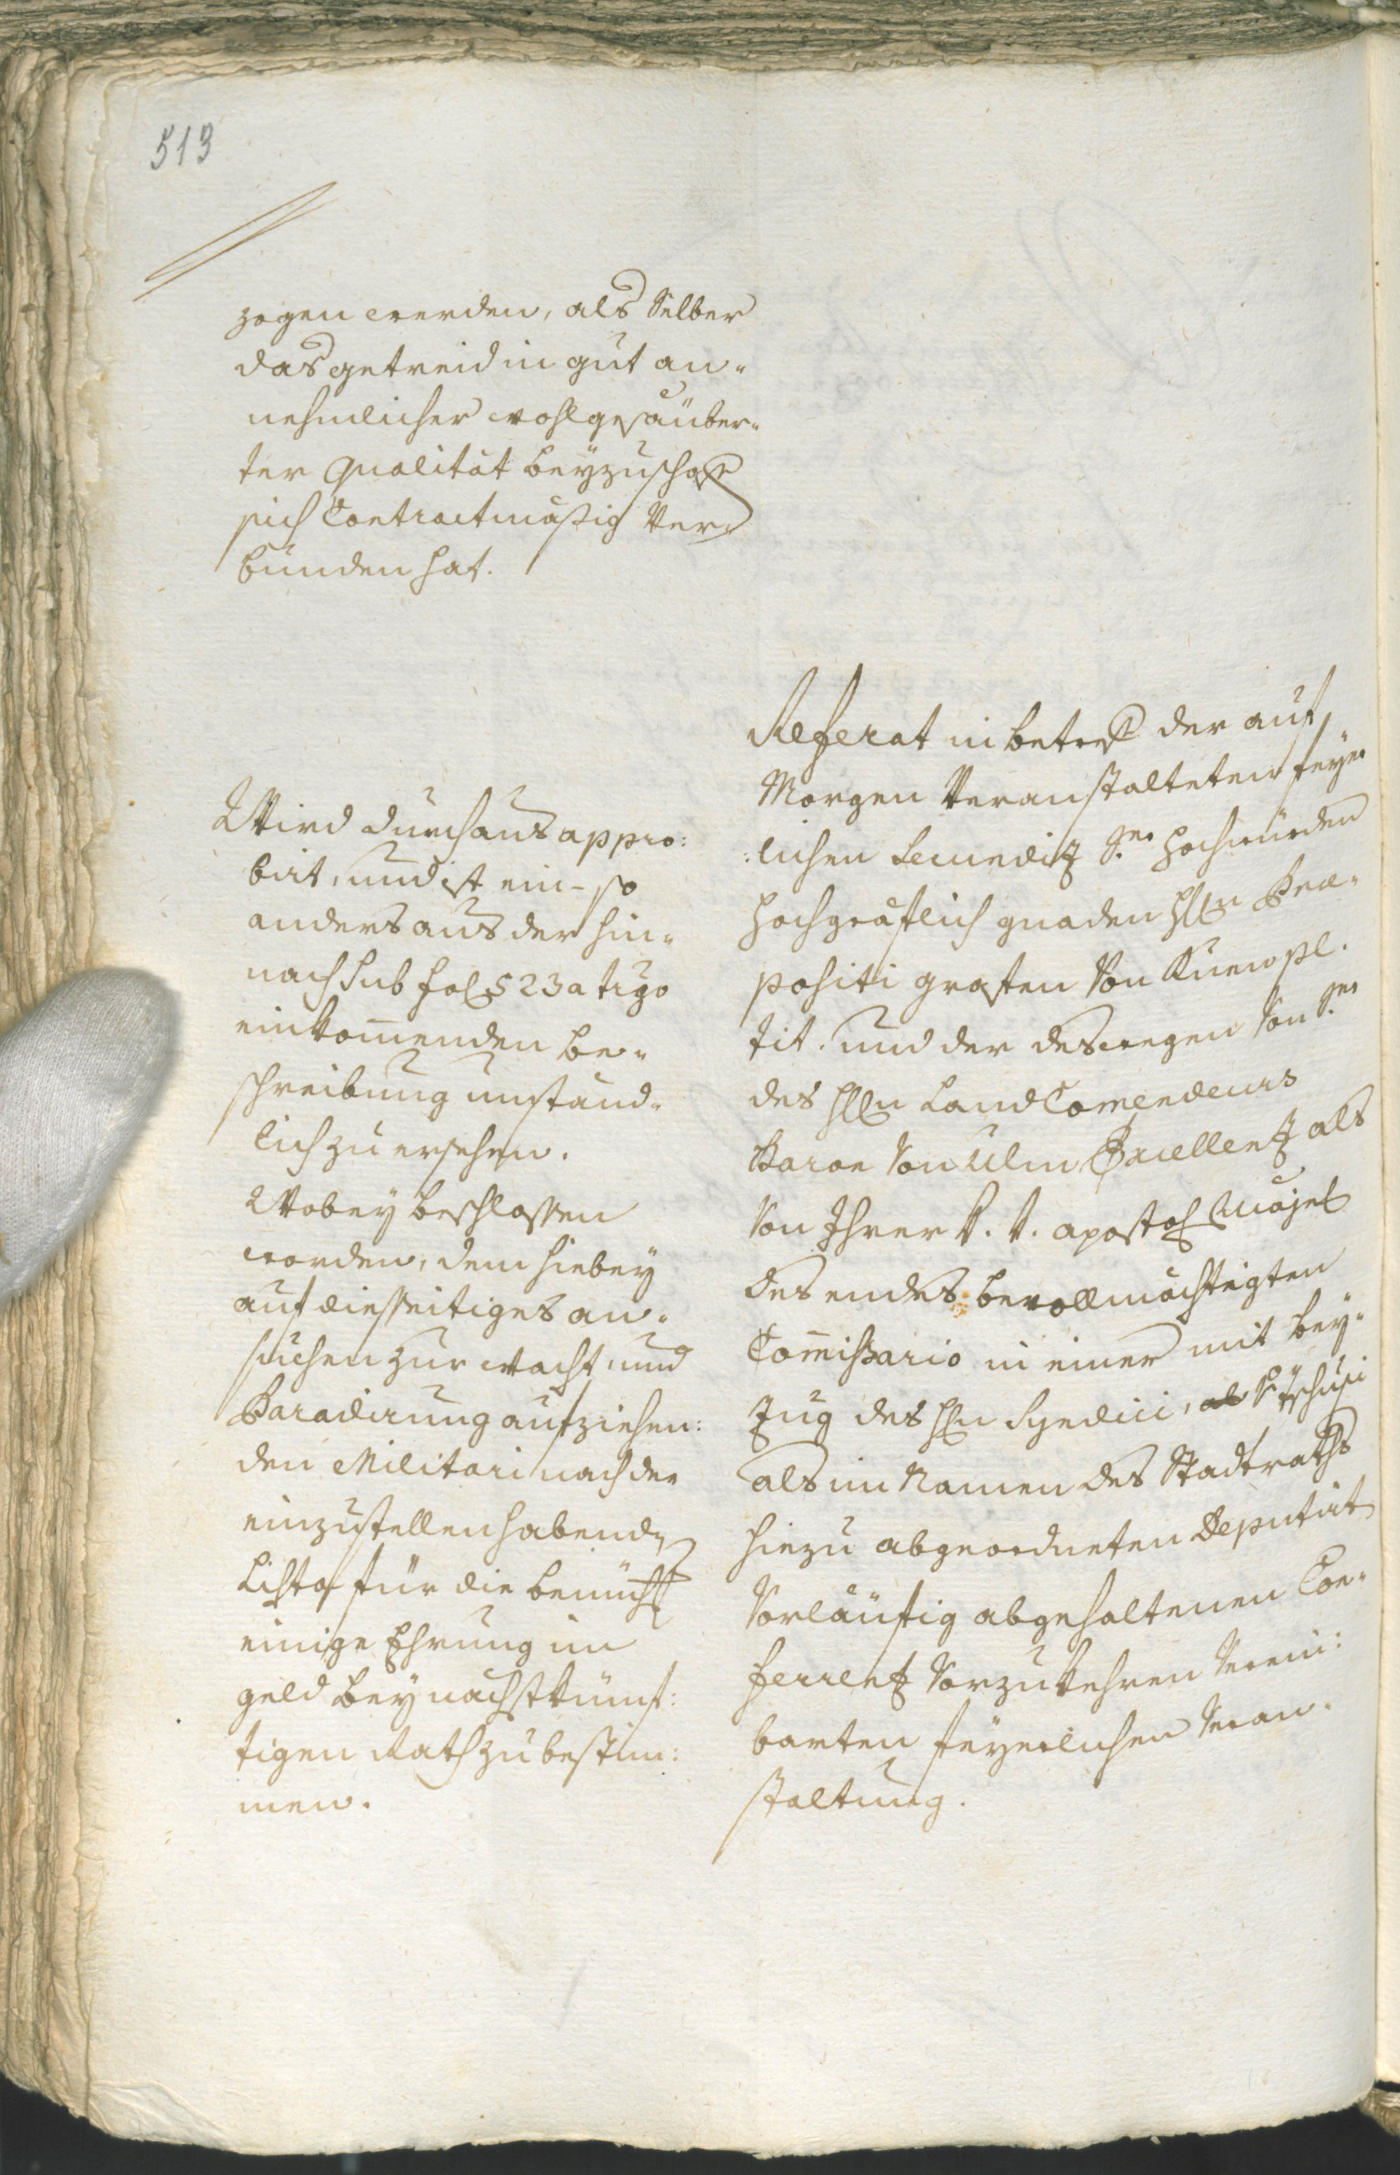 513
zogen werden, als Selber
das getreid in gut an-
nehmlicher wohlgesäuber-
ter Qualität beyzuschaffen
sich Contractmäßig Ver-
bunden hat.
Wird durchaus appro:
birt, und ist ein- so
anders aus der hin-
nach sub fol 523 a tergo
einkom̄enden Be-
schreibung umständ-
lich zu ersehen.
Wobey beschlossen
worden, dem hiebey
auf diesseitiges an-
suchen zur wacht, und
Paradirung aufziehen:
den Militari nach der
einzustellen habenden
Lista für die
einige Ehrung im
geld bey nächstkünf:
tigen Rath zu bestim:
men.
Referat in betreff der auf
Morgen Veranstalteten feyer
:lichen Secundiz Sr. hochwürden
hochgräflich gnaden Hln Prae-
positi grafen Von Kuen pl.
tit. und der deswegen Von Sr.
des Hln LandCom̄endeurs
Baron Von Ulm Excellenz als
Von Ihrer k. k. apostol Majest
des endes bevollmächtigten
Com̄issario in einer mit bey-
zug des Hln Syndici,
als im Namen des Stadtraths
hiezu abgeordneten Deputirt
Vorläufig abgehaltenen Con-
ferrenz Vorzukehren Verein:
barten feyerlichen Veran-
staltung.